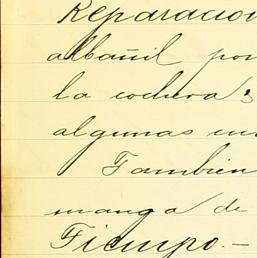 Reparacion
albañil por
la cochera;
algunas
Tambien
manga de
Tiempo.-